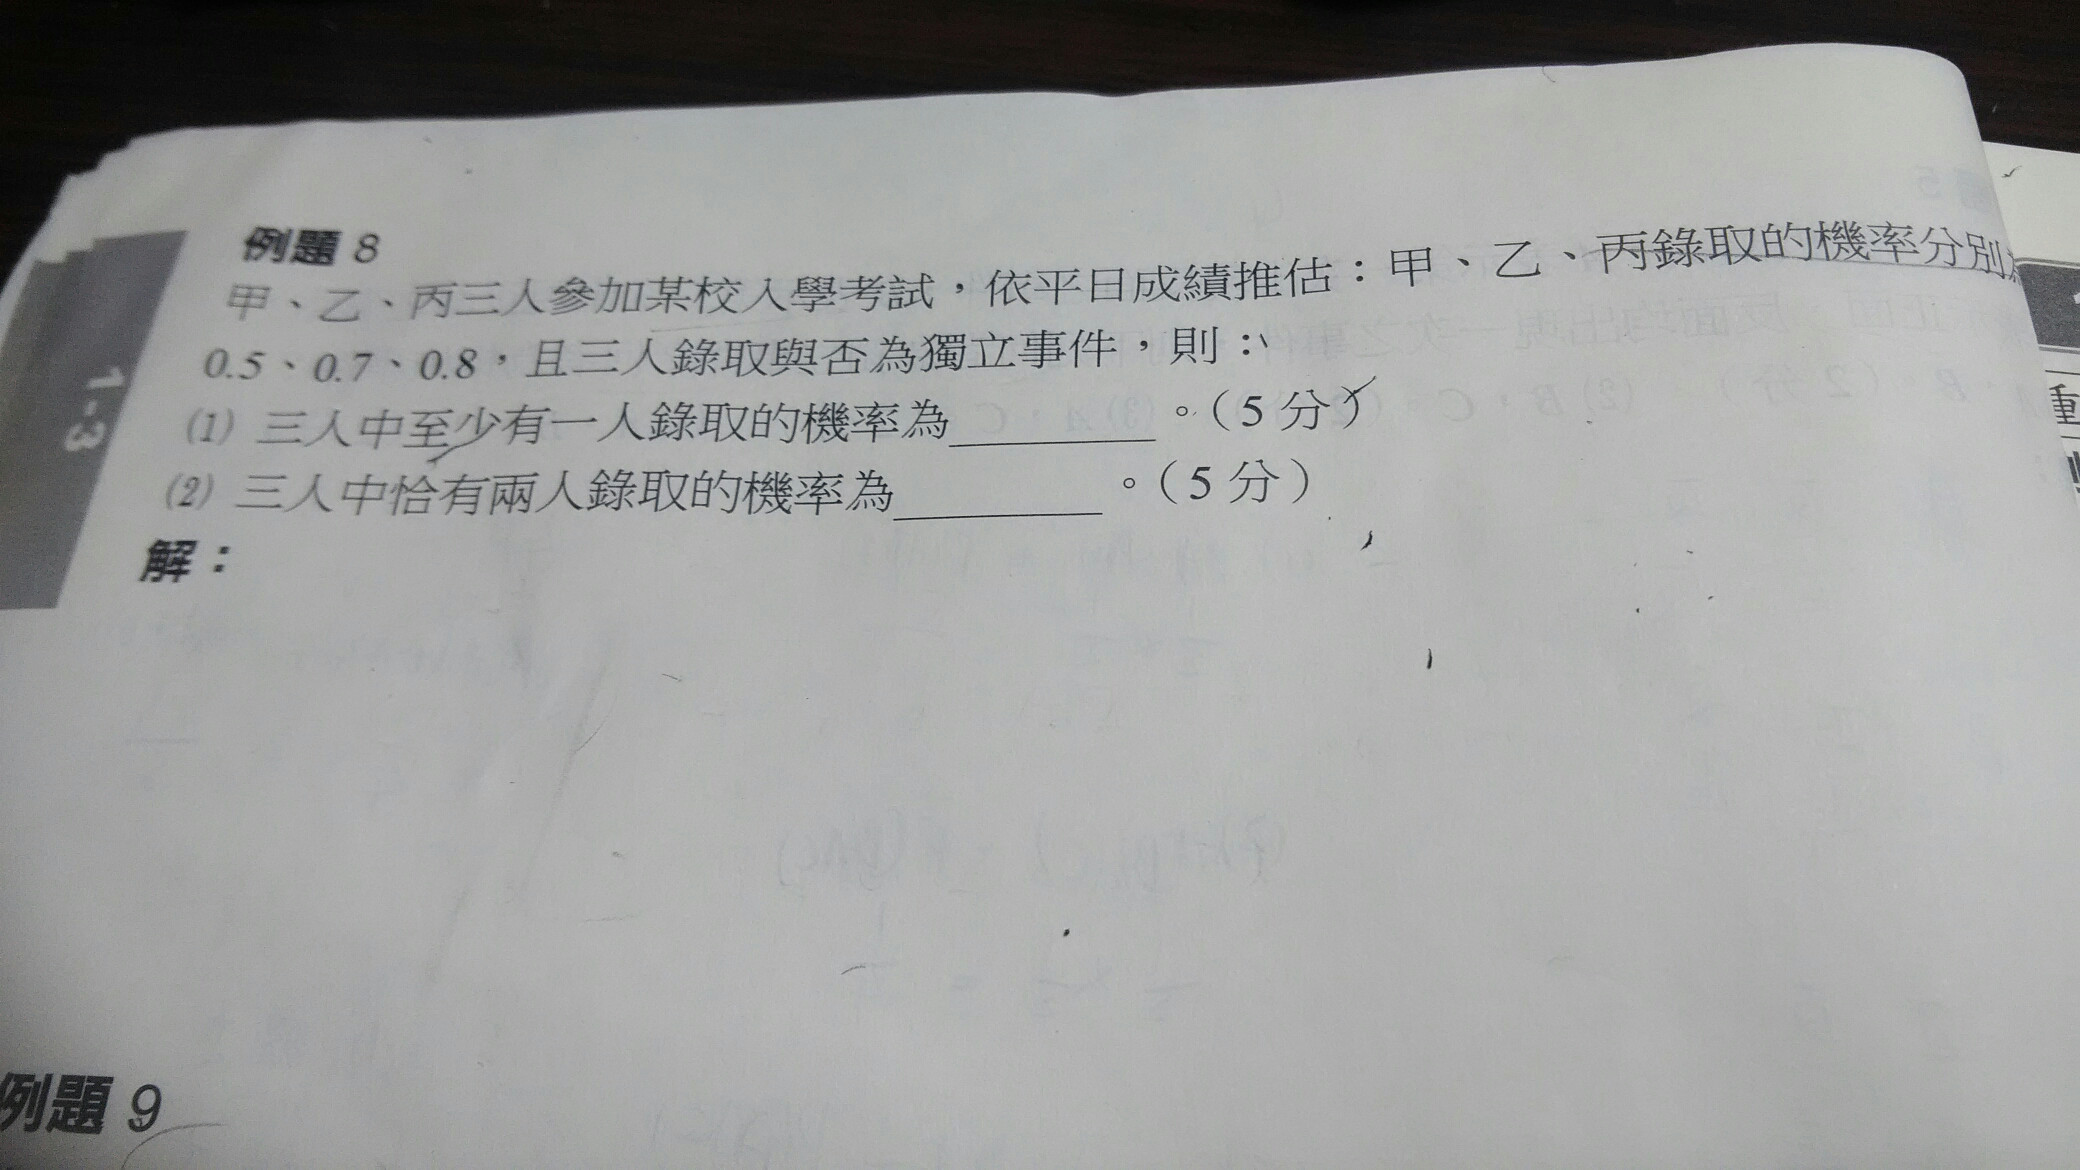 例題 8
甲、乙、丙三人參加某校入學考試，依平日成績推估：甲、乙、丙錄取的機率分別
0.5、0.7、0.8，且三人錄取與否為獨立事件，則：
(1) 三人中至少有一人錄取的機率為________。（5 分）
(2) 三人中恰有兩人錄取的機率為________。（5 分）
解：
例題 9
1-3
重